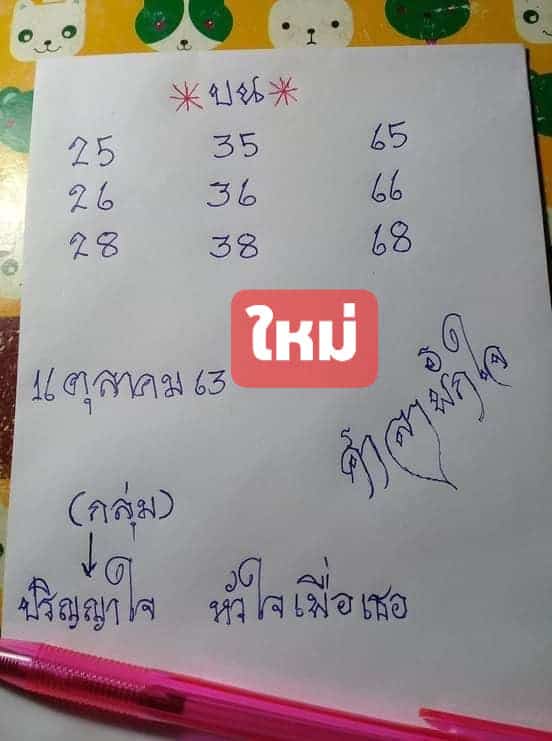 *บน*
25 35 65
26 36 66
28 38 68
ใหม่
16 ตุลาคม 63
(กลุ่ม)
ปริญญาใจ หัวใจเพื่อเธอ